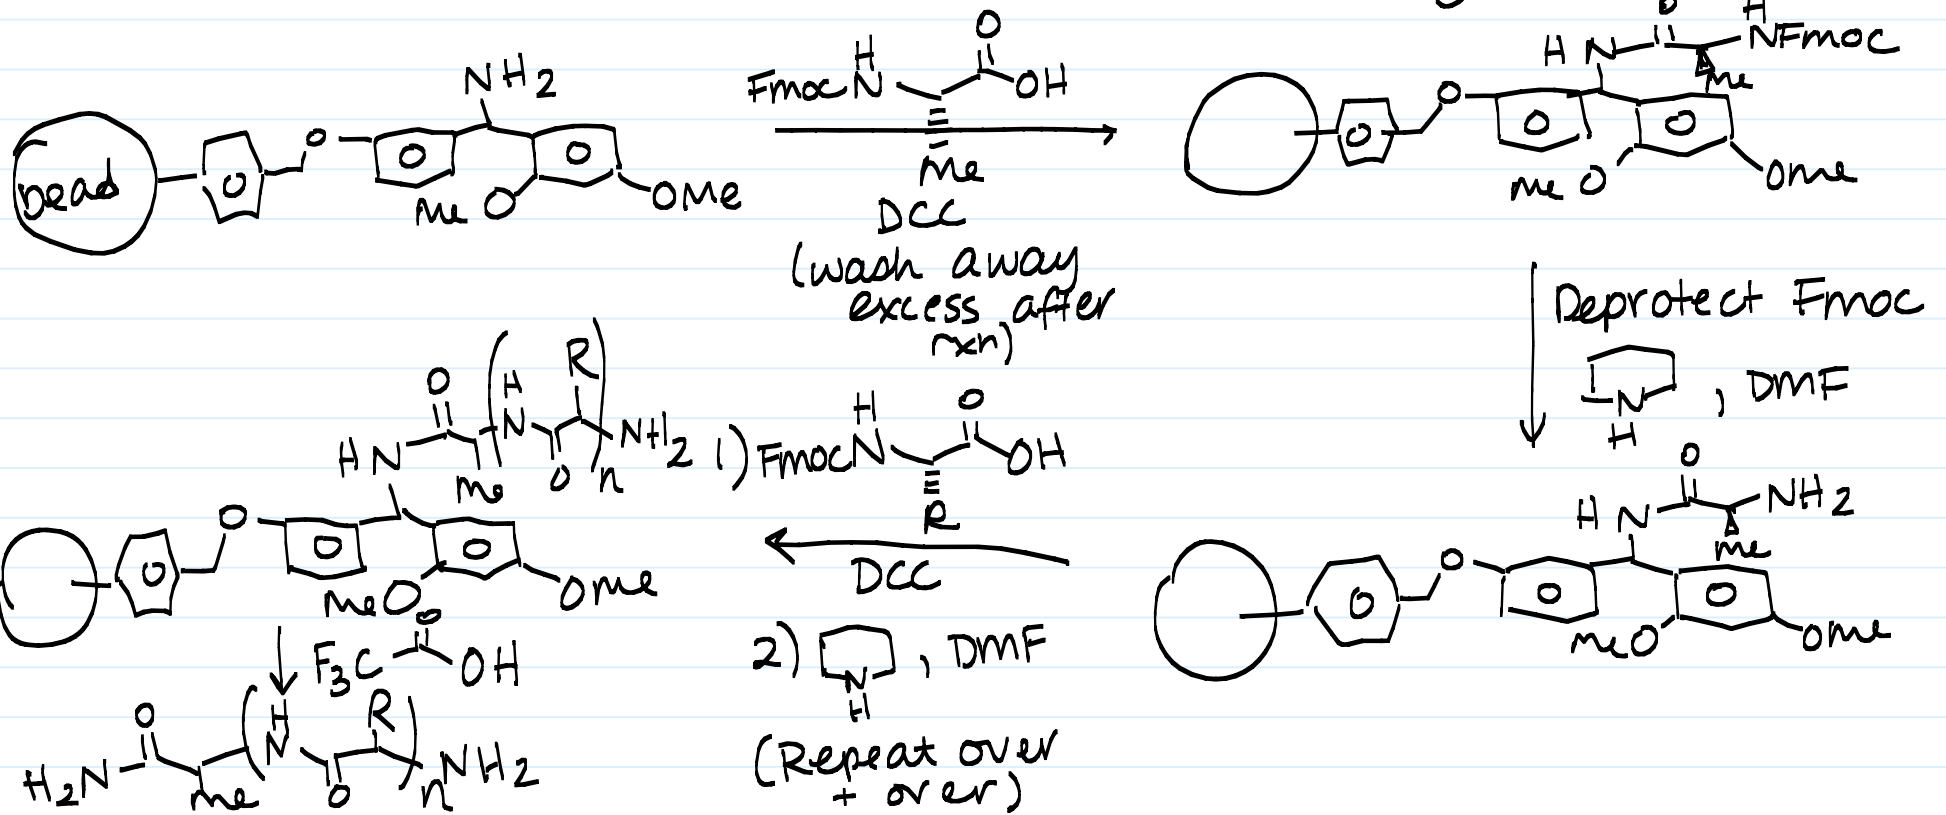 NH2
bead
O
MeO
OMe
FmocN
H
O
OH
Me
DCC
(wash away
excess after
rxn)
H N
O
H
NFmoc
Me
O
MeO
OMe
Deprotect Fmoc
N
H
, DMF
H N
O
NH2
Me
O
MeO
OMe
1) FmocN
H
O
OH
R
DCC
2)
N
H
, DMF
(Repeat over
+ over)
O
H N
Me
H
N
O
R
n
NH2
O
MeO
OMe
F3C
O
OH
H2N
O
Me
H
N
O
R
n
NH2